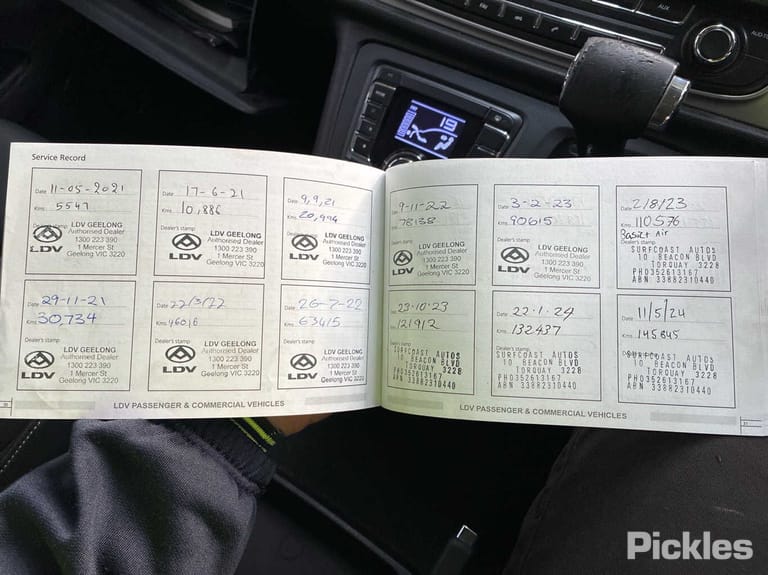 AUX
Service Record
Date 11-05-2021
Kms 5547
Dealer's stamp
LDV
LDV GEELONG
Authorised Dealer
1300 223 390
1 Mercer St
Geelong VIC 3220
Date 17-6-21
Kms 10,886
Dealer's stamp
LDV
LDV GEELONG
Authorised Dealer
1300 223 390
1 Mercer St
Geelong VIC 3220
Date 9,9,21
Kms 20,994
Dealer's stamp
LDV
LDV GEELONG
Authorised Dealer
1300 223 390
1 Mercer St
Geelong VIC 3220
Date 29-11-21
Kms 30,734
Dealer's stamp
LDV
LDV GEELONG
Authorised Dealer
1300 223 390
1 Mercer St
Geelong VIC 3220
Date 22/3/22
Kms 46016
Dealer's stamp
LDV
LDV GEELONG
Authorised Dealer
1300 223 390
1 Mercer St
Geelong VIC 3220
Date 26-7-22
Kms 63415
Dealer's stamp
LDV
LDV GEELONG
Authorised Dealer
1300 223 390
1 Mercer St
Geelong VIC 3220
LDV PASSENGER & COMMERCIAL VEHICLES
Date 9-11-22
Kms 78138
Dealer's stamp
LDV
LDV GEELONG
Authorised Dealer
1300 223 390
1 Mercer St
Geelong VIC 3220
Date 3-2-23
Kms 90615
Dealer's stamp
LDV
LDV GEELONG
Authorised Dealer
1300 223 390
1 Mercer St
Geelong VIC 3220
Date 2/8/23
Kms 110576
Air
Dealer's stamp
SURFCOAST AUTOS
10 BEACON BLVD
TORQUAY 3228
PH0352613167
ABN 33882310440
Date 23-10-23
Kms 121912
Dealer's stamp
SURFCOAST AUTOS
10 BEACON BLVD
TORQUAY 3228
PH0352613167
ABN 33882310440
Date 22-1-24
Kms 132437
Dealer's stamp
SURFCOAST AUTOS
10 BEACON BLVD
TORQUAY 3228
PH0352613167
ABN 33882310440
Date 11/5/24
Kms 145845
Dealer's stamp
SURFCOAST AUTOS
10 BEACON BLVD
TORQUAY 3228
PH0352613167
ABN 33882310440
LDV PASSENGER & COMMERCIAL VEHICLES
31
Pickles